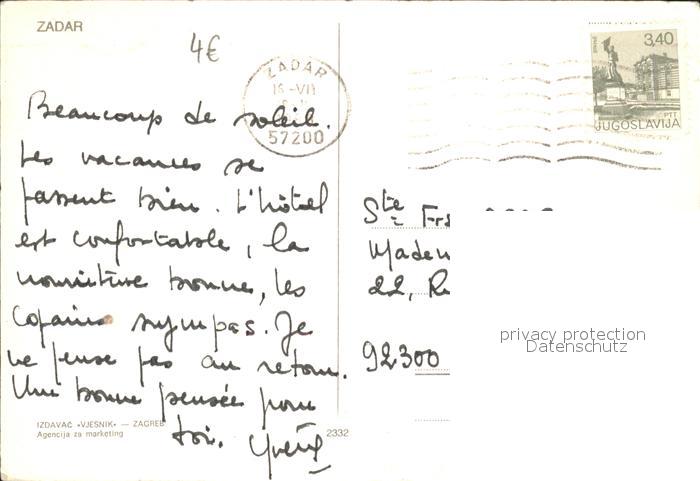 ZADAR
4€
ZADAR
16-VII
57200
3,40
PTT
JUGOSLAVIJA
Beaucoup de soleil.
Les vacances se
passent bien. L'hôtel
est confortable, la
nourriture bonne, les
copains sympas. Je
ne pense pas au retour.
Une bonne pensée pour
toi.
Ste
22,
92300
privacy protection
Datenschutz
IZDAVAČ «VJESNIK» — ZAGREB
Agencija za marketing
2332